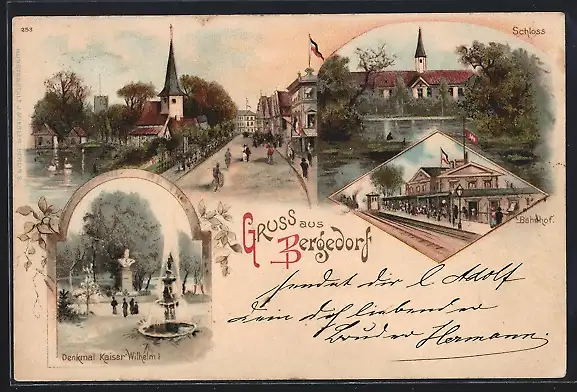 253
Schloss
Bahnhof.
Gruss aus
Bergedorf
Denkmal Kaiser Wilhelm I
sendet dir l. Adolf
dein dich liebender
Bruder Hermann.